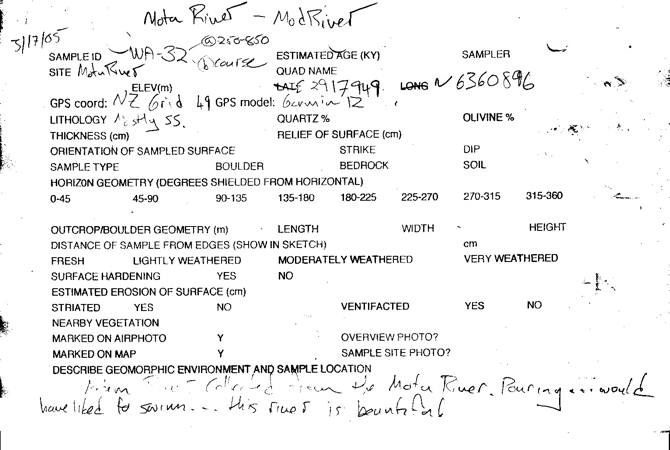 Motu River - Mod River
3/17/05
SAMPLE ID WA-32 ⓐ 250-850 ESTIMATED AGE (KY) SAMPLER
ⓑ course
SITE Motu River QUAD NAME
ELEV(m) LAT E 2917949 LONG N 6360896
GPS coord: NZ Grid 49 GPS model: Garmin 12
LITHOLOGY Mostly SS. QUARTZ % OLIVINE %
THICKNESS (cm) RELIEF OF SURFACE (cm)
ORIENTATION OF SAMPLED SURFACE STRIKE DIP
SAMPLE TYPE BOULDER BEDROCK SOIL
HORIZON GEOMETRY (DEGREES SHIELDED FROM HORIZONTAL)
0-45 45-90 90-135 135-180 180-225 225-270 270-315 315-360
OUTCROP/BOULDER GEOMETRY (m) LENGTH WIDTH HEIGHT
DISTANCE OF SAMPLE FROM EDGES (SHOW IN SKETCH) cm
FRESH LIGHTLY WEATHERED MODERATELY WEATHERED VERY WEATHERED
SURFACE HARDENING YES NO
ESTIMATED EROSION OF SURFACE (cm)
STRIATED YES NO VENTIFACTED YES NO
NEARBY VEGETATION
MARKED ON AIRPHOTO Y OVERVIEW PHOTO?
MARKED ON MAP Y SAMPLE SITE PHOTO?
DESCRIBE GEOMORPHIC ENVIRONMENT AND SAMPLE LOCATION
collected from the Motu River. Pouring...would
have liked to swim... this river is beautiful